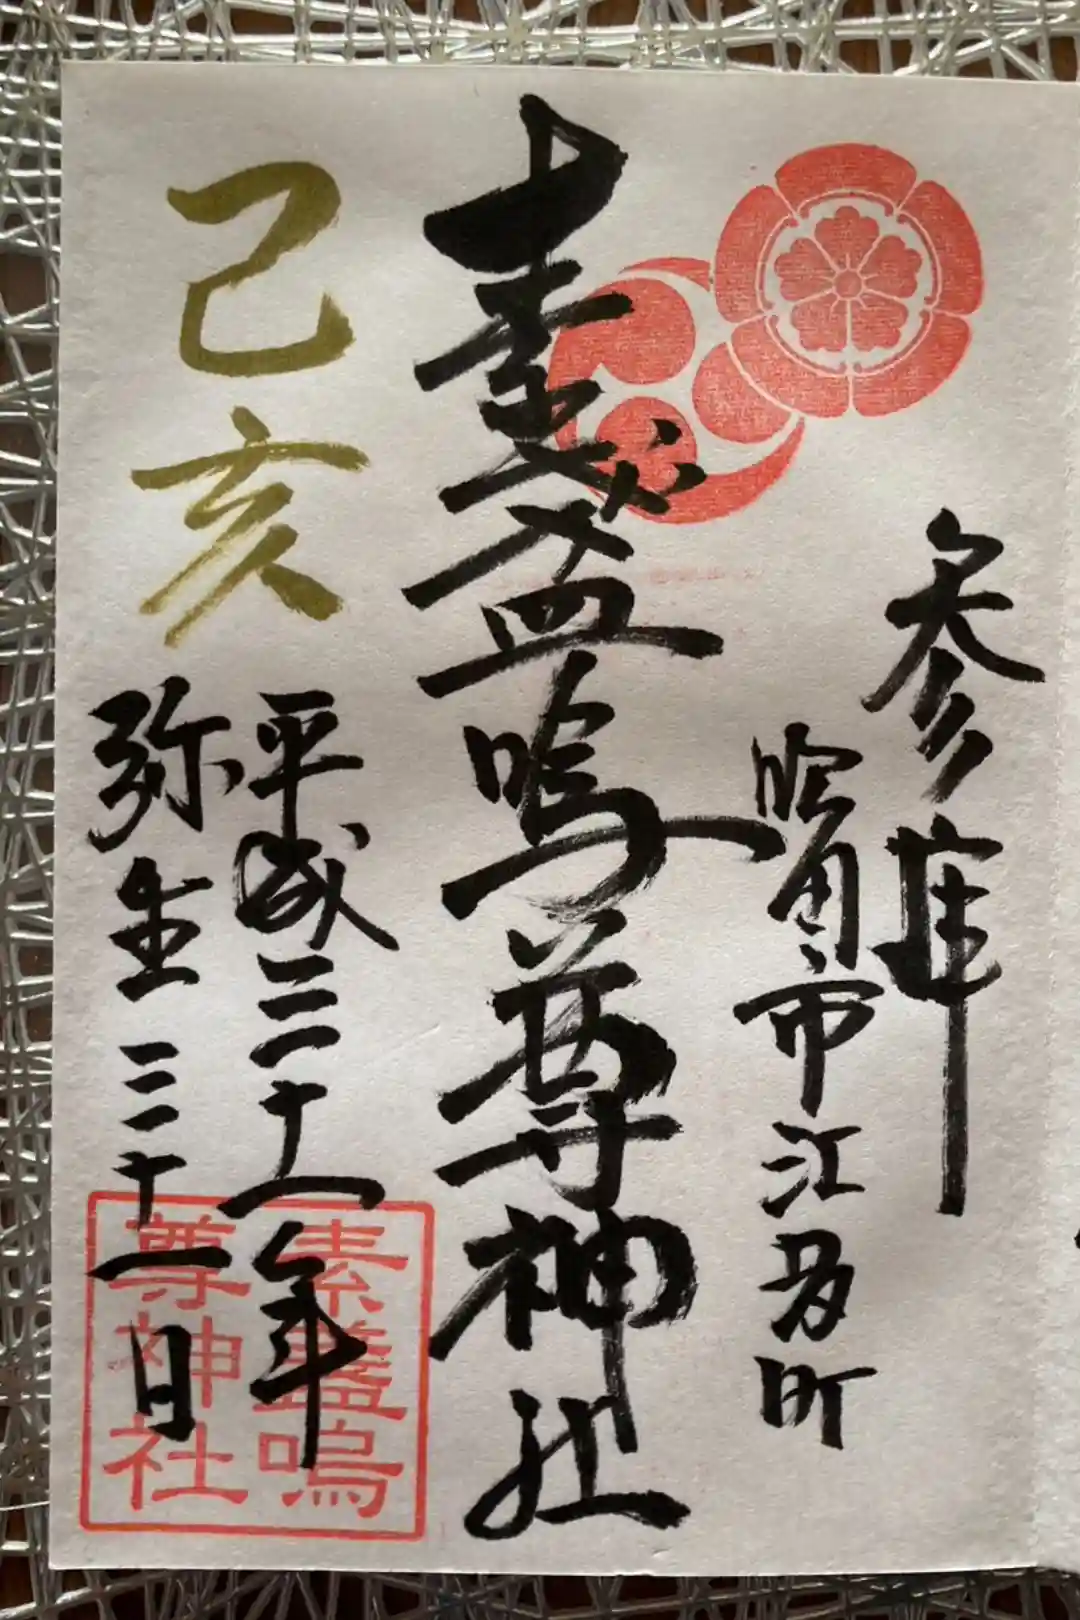 参拝
市江 町
素盞嗚尊神社
己亥
平成三十一年
弥生三十一日
素盞嗚
尊神社